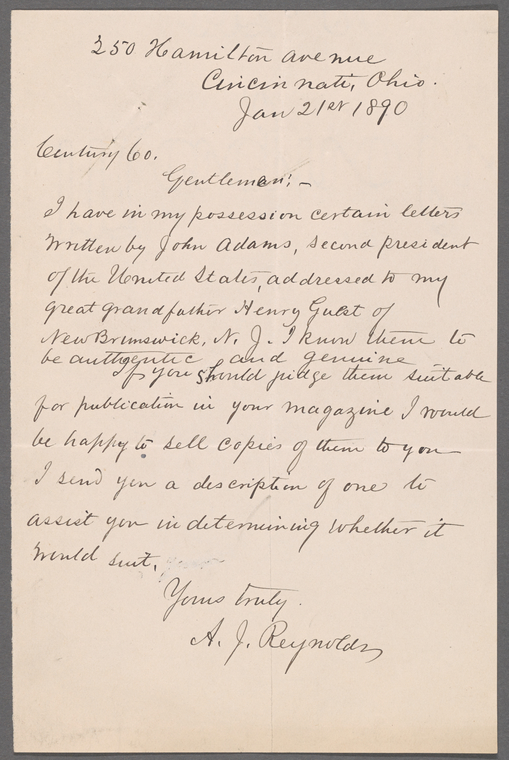 250 Hamilton avenue
Cincinnati, Ohio.
Jan 21st 1890
Century Co.
Gentlemen: —
I have in my possession certain letters
written by John Adams, second president
of the United States, addressed to my
great grandfather Henry Guest of
New Brunswick, N. J. I know them to
be authgentic and genuine
If you should judge them suitable
for publication in your magazine I would
be happy to sell copies of them to you
I send you a description of one to
assist you in determining whether it
would suit.
Yours truly.
A. J. Reynolds